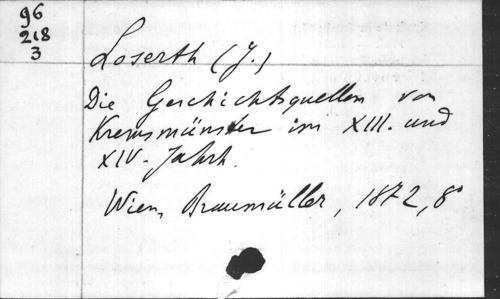 96
218
3
Loserth (J.)
Die Geschichtsquellen von
Kremsmünster im XIII. und
XIV. Jahrh.
Wien, Braumüller, 1872, 8°